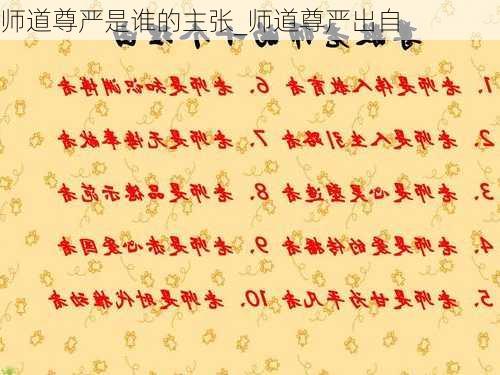 师道尊严是谁的主张_师道尊严出自
尊敬老师的十个理由
1. 老师是传人教育者 6. 老师是知识渊博者
2. 老师是人生引路者 7. 老师是无悔奉献者
3. 老师是心灵塑造者 8. 老师是品德示范者
4. 老师是爱的传播者 9. 老师是赤心爱国者
5. 老师是甘为平凡者 10. 老师是时代推动者